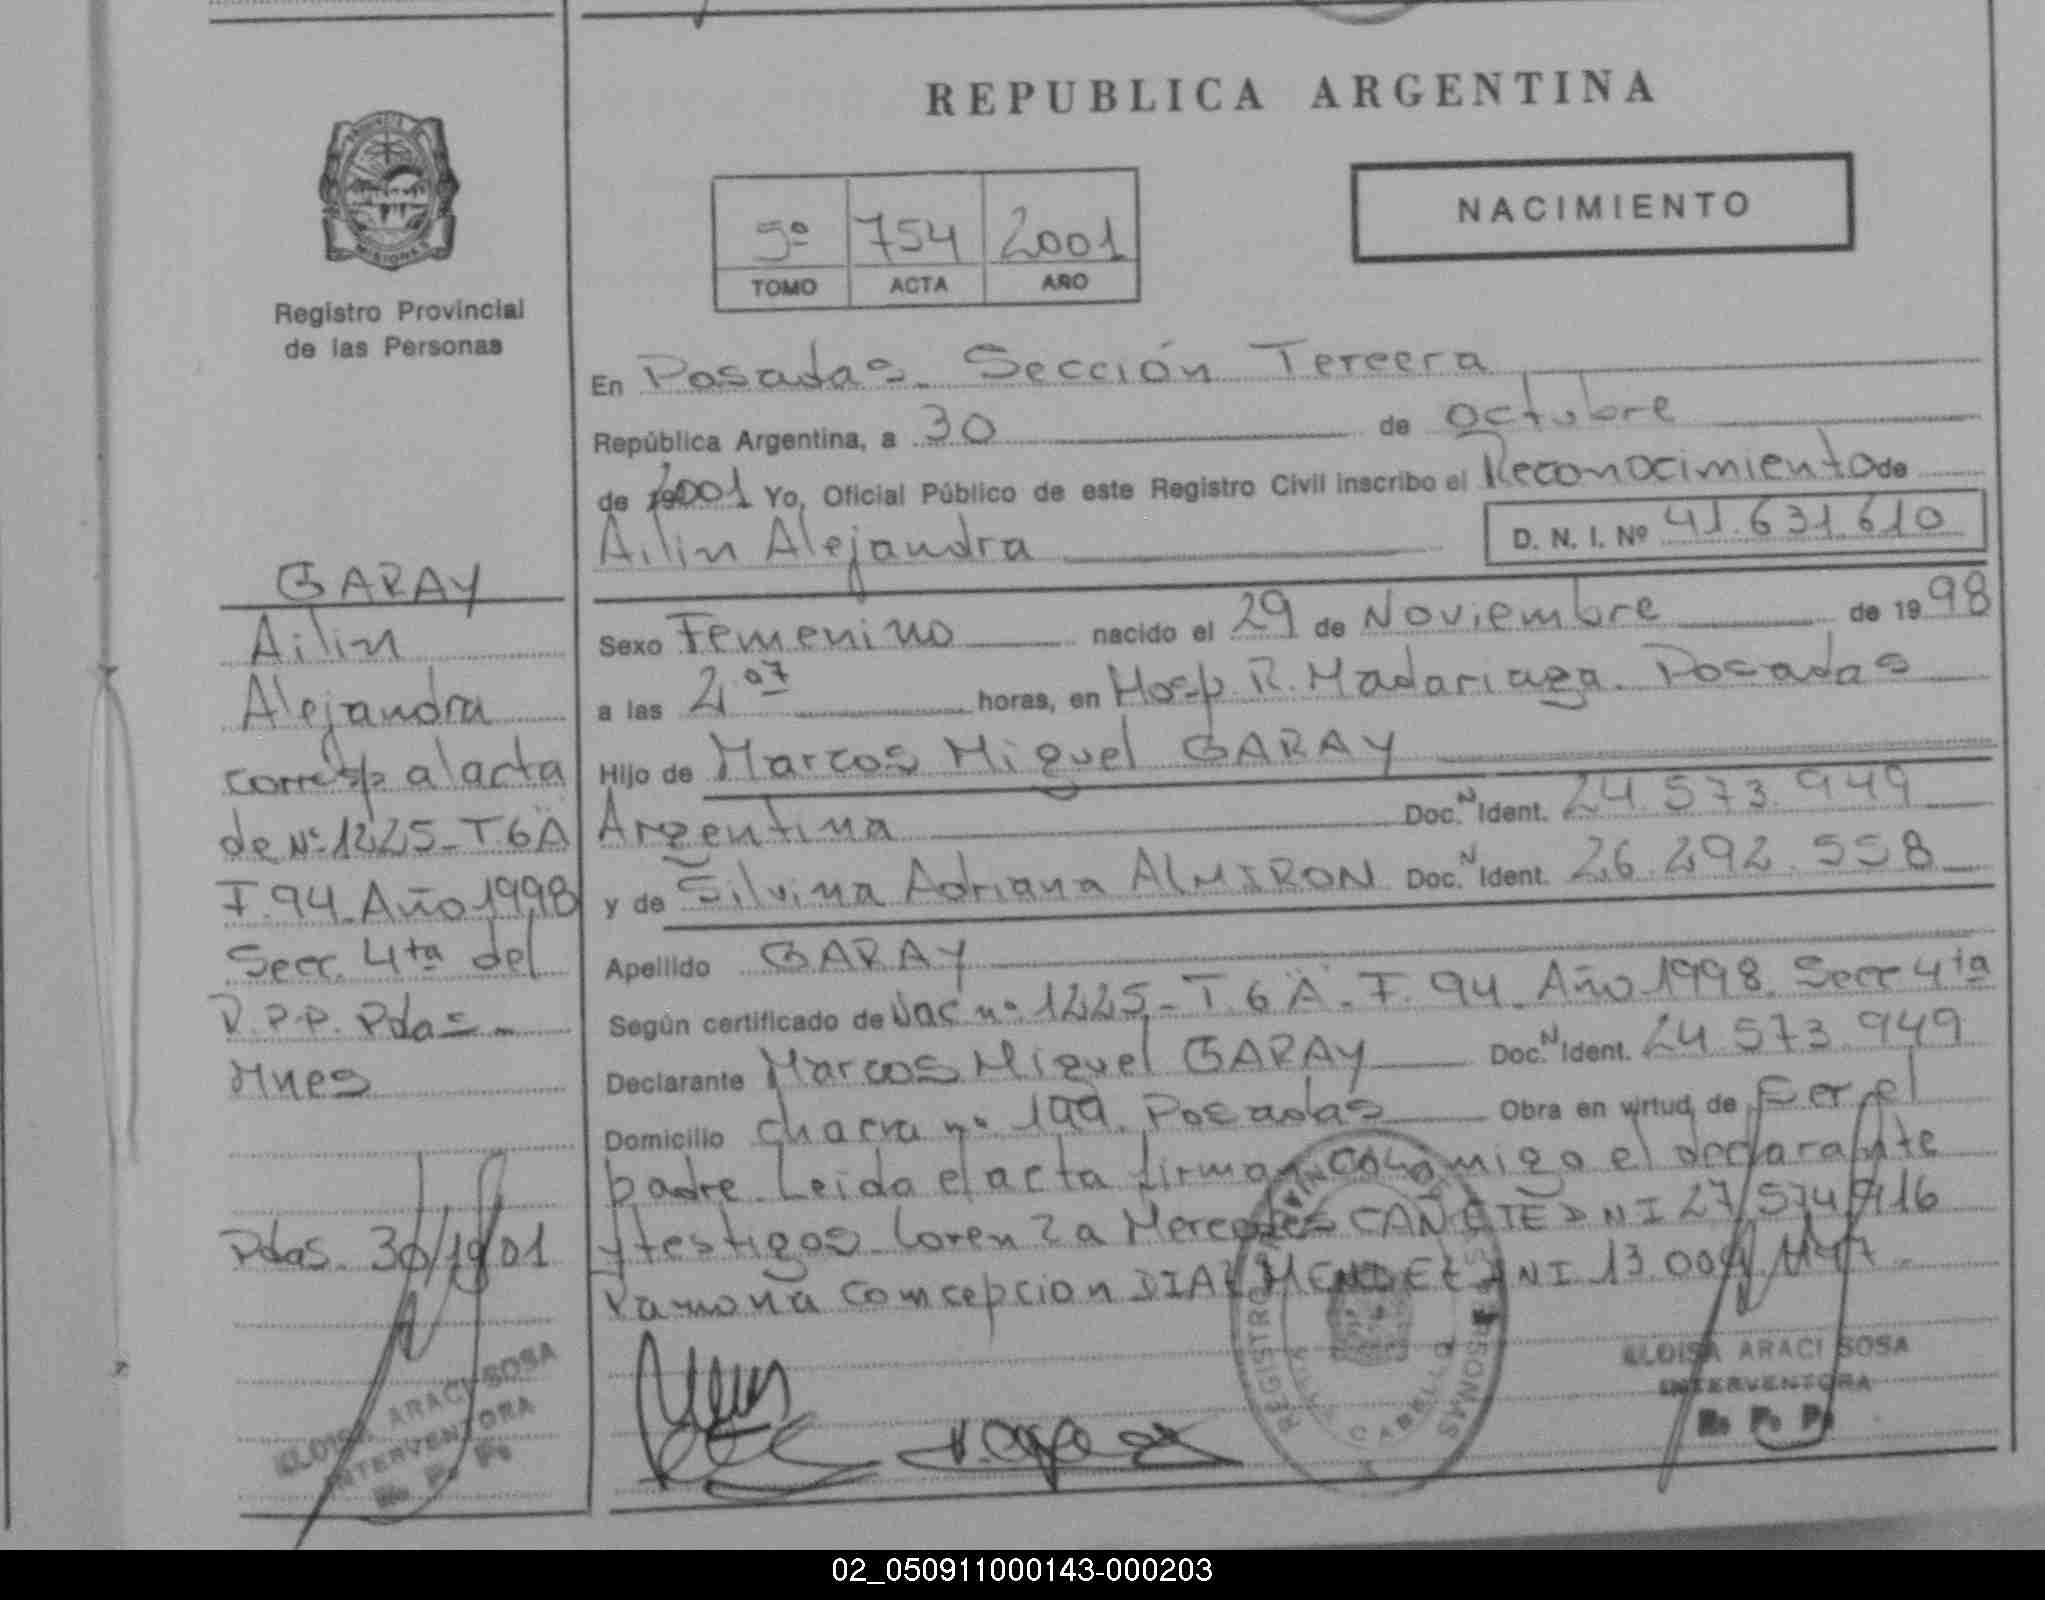 REPUBLICA ARGENTINA
NACIMIENTO
5º 754 2001
TOMO ACTA AÑO
Registro Provincial
de las Personas
En Posadas. Sección Tercera
República Argentina, a 30 de octubre
de 2001 Yo, Oficial Público de este Registro Civil inscribo el Reconocimiento de
Ailin Alejandra D. N. I. Nº 41.631.610
Sexo Femenino nacido el 29 de Noviembre de 1998
a las 2 07 horas, en Hosp. R. Madariaga. Posadas
Hijo de Marcos Miguel GARAY
Argentina Doc. N Ident. 24.573.949
y de Silvina Adriana ALMIRON Doc. N Ident. 26.292.558
Apellido GARAY
Según certificado de Nac nº 1225_T.6 A_F.94_Año 1998. Secc 4ta
Declarante Marcos Miguel GARAY Doc. N Ident. 24 573.949
Domicilio chacra nº 199. Posadas Obra en virtud de Ser el
padre. Leida el acta firman conmigo el declarante
y testigos Lorenza Mercedes CAÑETE DNI 27 574 916
Ramona Comcepcion DIAZ MENDEZ DNI 13.004
ELOISA ARACI SOSA
INTERVENTORA
R. P. P.
REGISTRO PROVINCIAL DE LAS PERSONAS
VILLA CABELLO
GARAY
Ailin
Alejandra
corresp al acta
de Nº 1225_T.6 A
F.94_Año 1998
Secc. 4ta del
R.P.P. Pdas_
Mnes
Pdas. 30/10/01
ELOISA ARACI SOSA
INTERVENTORA
R. P. P.
02_050911000143-000203